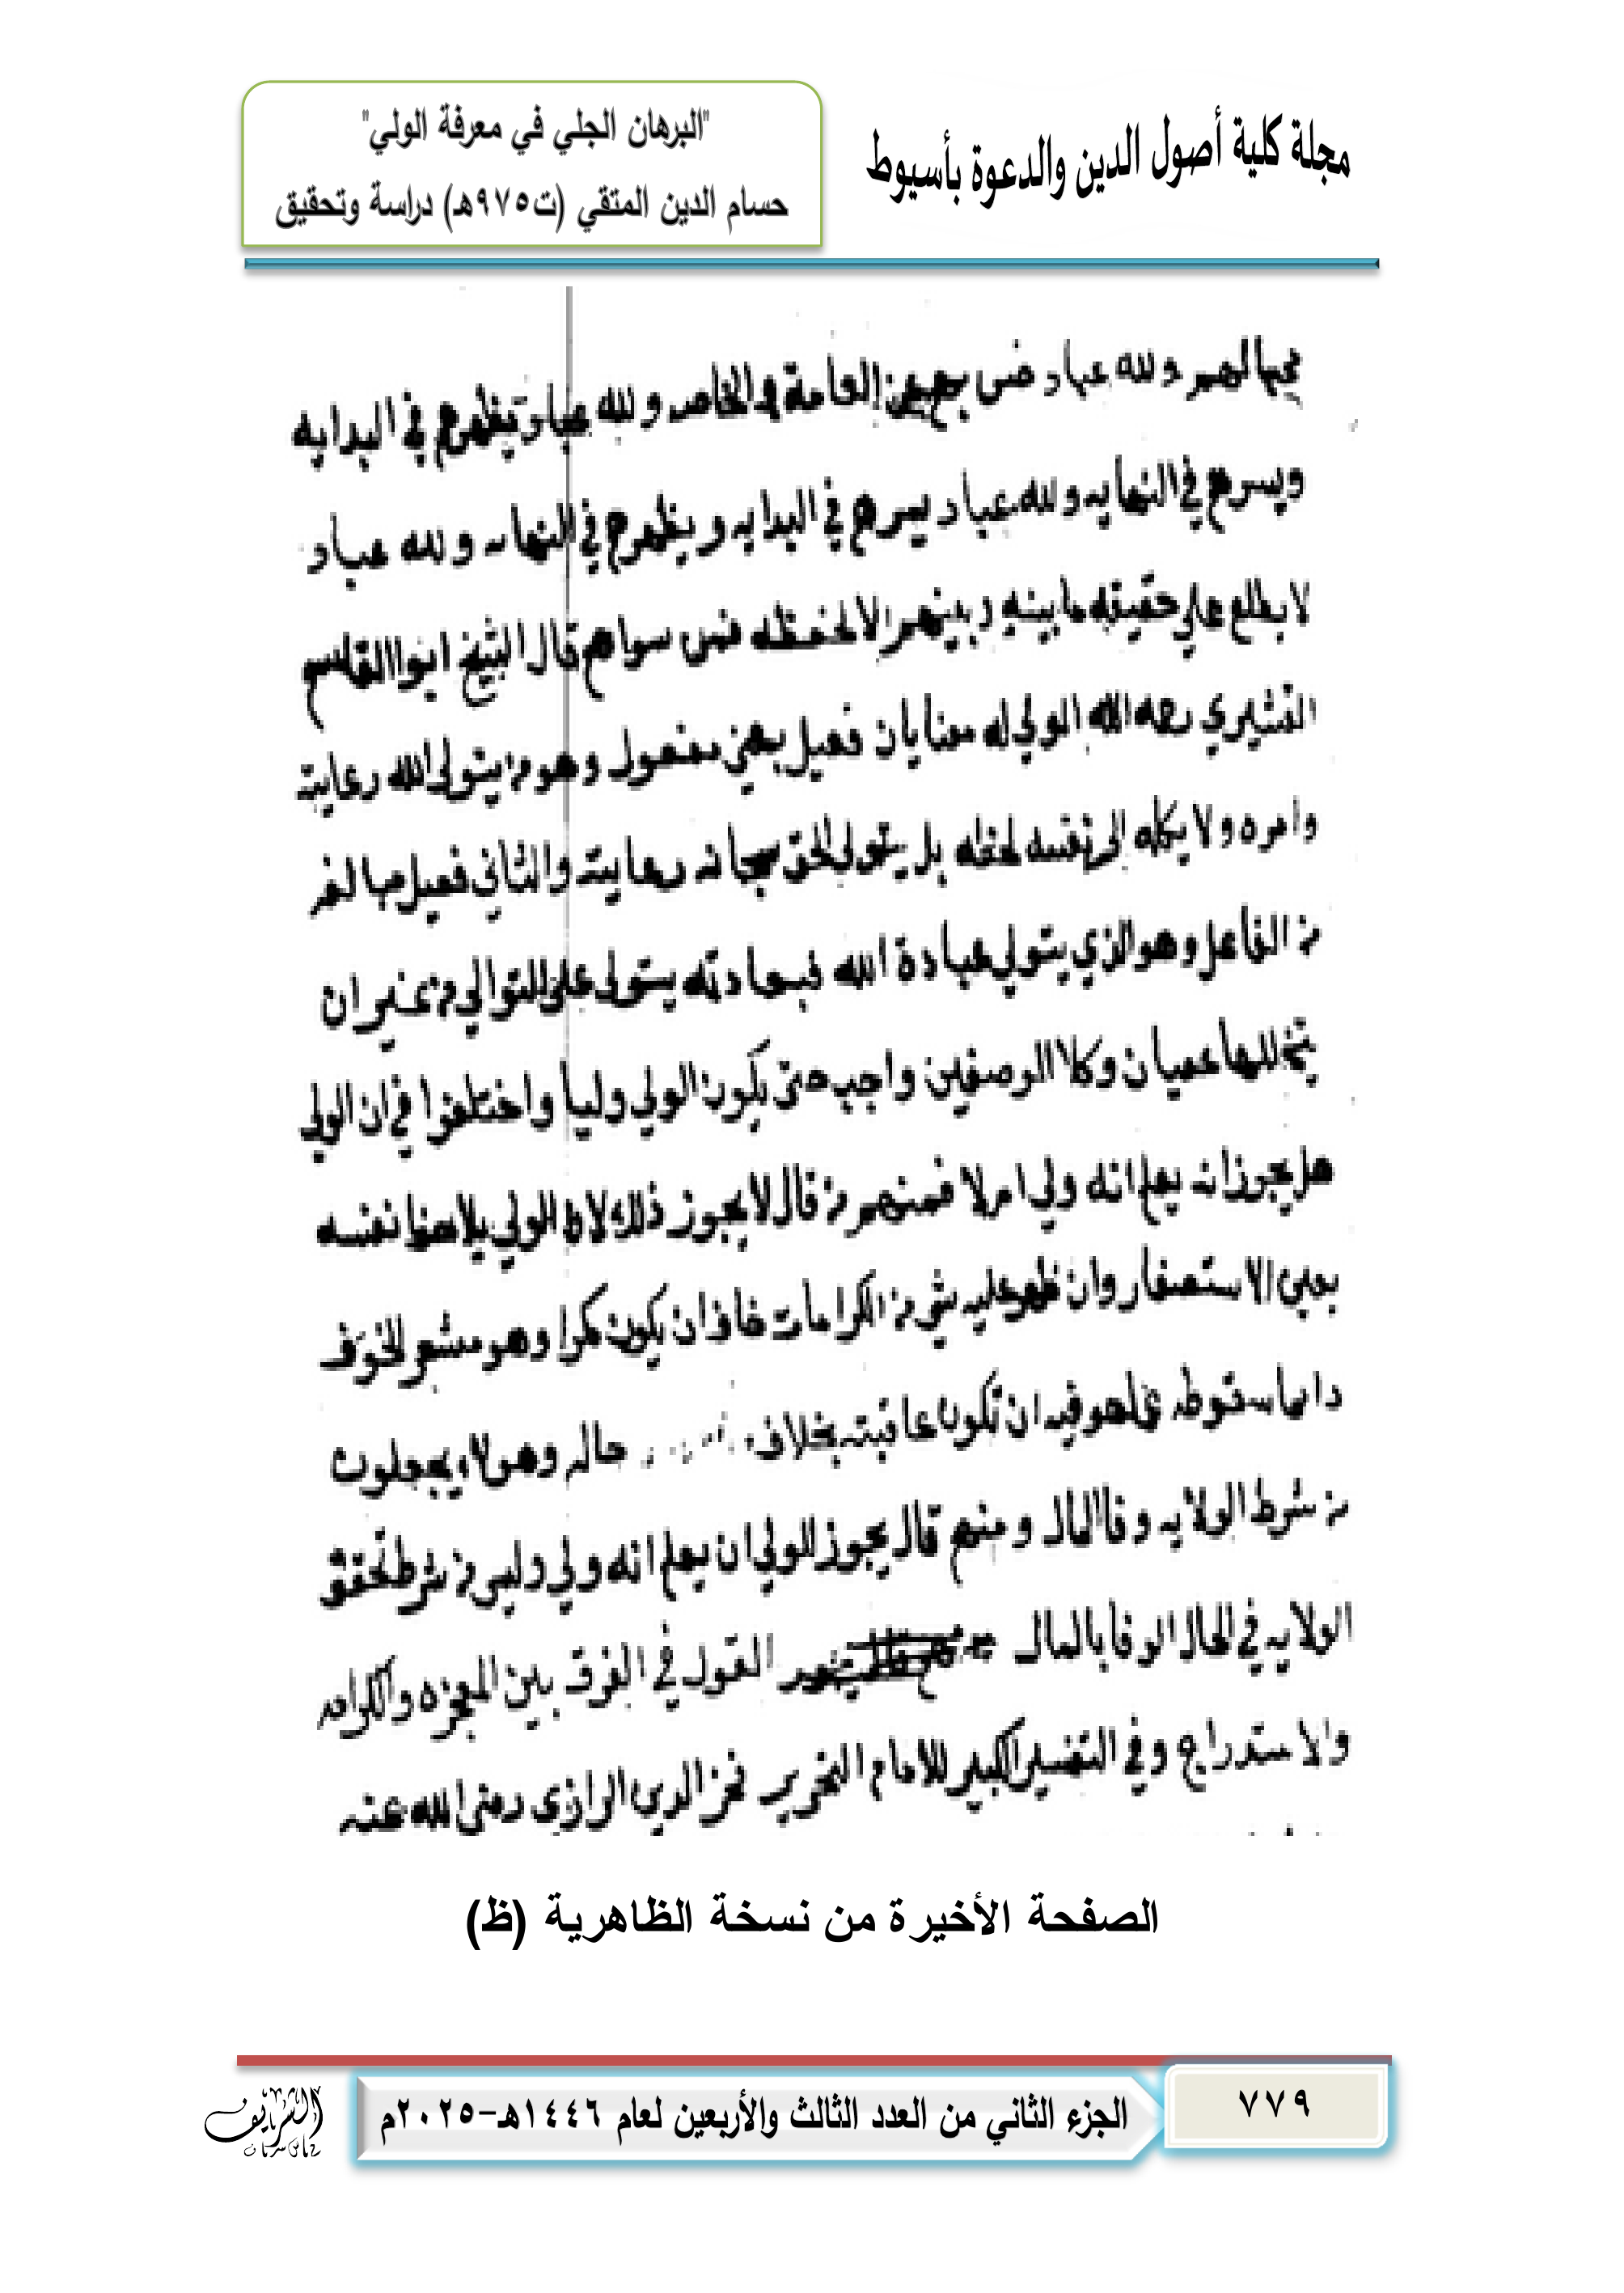 مجلة كلية أصول الدين والدعوة بأسيوط
"البرهان الجلي في معرفة الولي"
حسام الدين المتقي (ت٩٧٥هـ) دراسة وتحقيق
ولله عباد ضن بهم عن العامة والخاصه ولله عباد يظهرهم في البدايه
ويسرهم في النهايه ولله عباد يسرهم في البدايه ويظهرهم في النهايه ولله عباد
لا يطلع على حقيقة ما بينه وبينهم الا لحفظه فمن سواهم قال الشيخ ابو القاسم
القشيري رحمه الله الولي له معنايان فعيل بمعني مفعول وهو من يتولى الله رعايته
وامره ولا يكله الى نفسه لحظه بل يتولى الحق سبحانه رعايته والثاني فعيل مبالغه
من الفاعل وهو الذي يتولي عبادة الله فعبادته يتولى على التوالي من غير ان
يتخللها عصيان وكلا الوصفين واجب حتى يكون الولي وليا واختلفوا في ان الولي
هل يجوز انه يعلم انه ولي ام لا فمنهم من قال لا يجوز ذلك لان الولي يلاحظ نفسه
بعين الاستصغار وان ظهر عليه شي من الكرامات خاف ان يكون مكرا وهو مستشعر الخوف
دايما سقوطه عما هو فيه ان تكون عاقبته بخلاف حاله وهولاء يجعلون
من شرط الولايه وفا المال ومنهم قال يجوز للولي ان يعلم انه ولي وليس من شرط تحقق
الولايه في الحال الوفا بالمال القول في الفرق بين المعجزه والكرامه
والاستدراج وفي التفسير الكبير للامام النحرير فخر الدين الرازي رضي الله عنه
الصفحة الأخيرة من نسخة الظاهرية (ظ)
الجزء الثاني من العدد الثالث والأربعين لعام ١٤٤٦هـ-٢٠٢٥م
٧٧٩